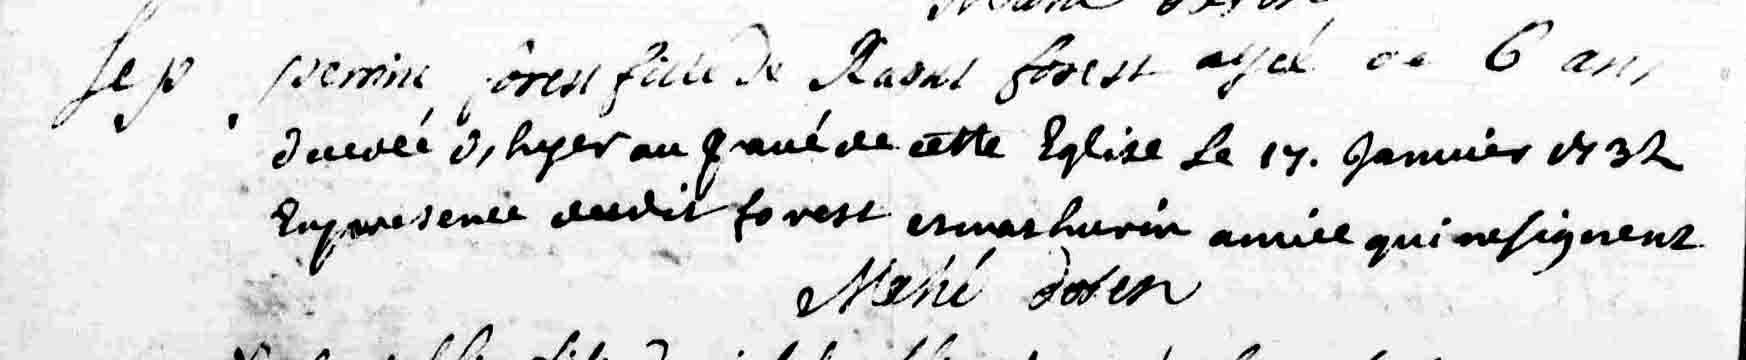 Sep perrine forest fille de Raoul forest agée de 6 ans
decedée d'hyer au pavé de cette Eglise Le 17. Janvier 1732
En presence dudit forest et mathurin qui ne signent
Mahé